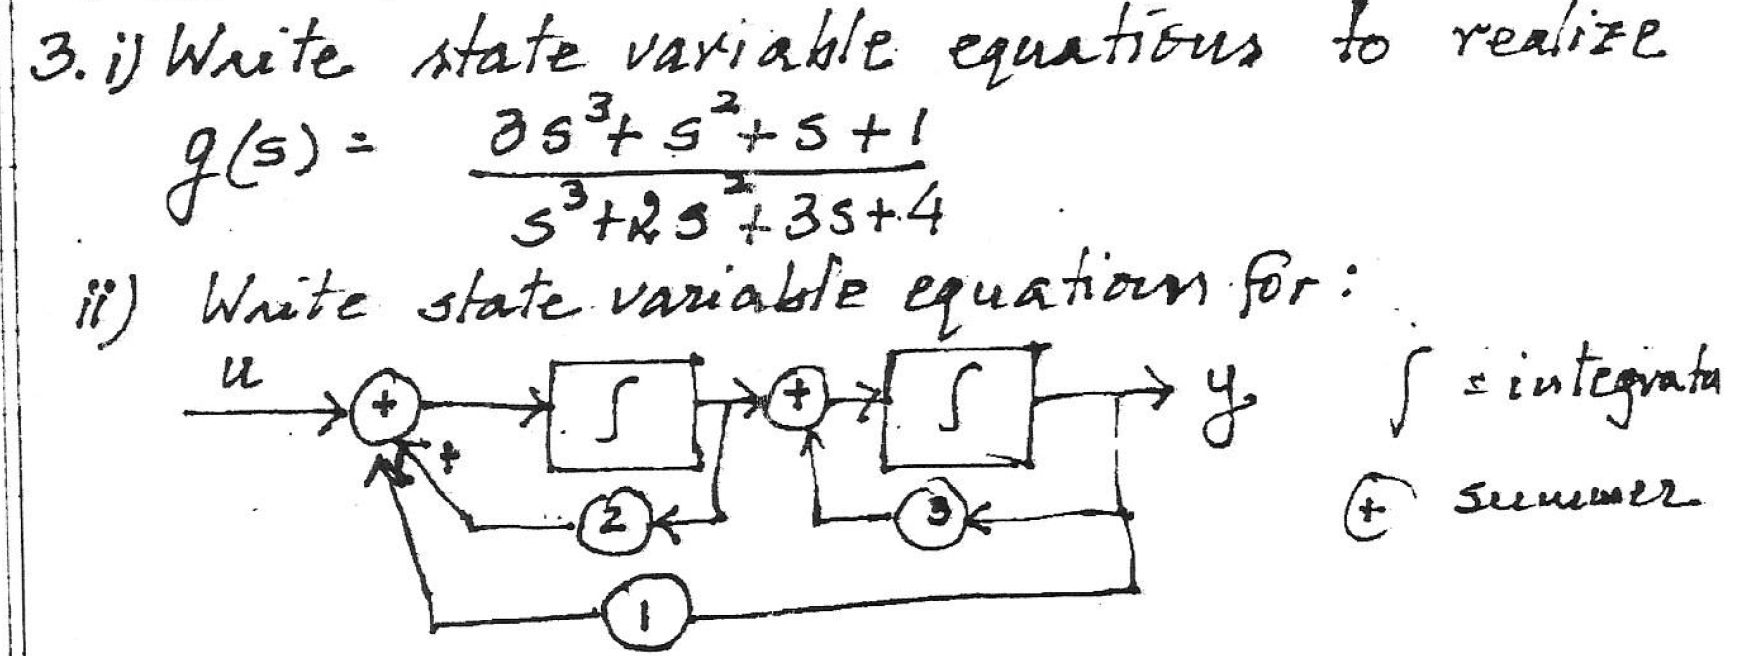 3. i) Write state variable equations to realize
g(s) = 3s³ + s² + s + 1
s³ + 2s² + 3s + 4
ii) Write state variable equations for :
u + ∫ + ∫ y ∫ = integrator
+ 2 3 + summer
1